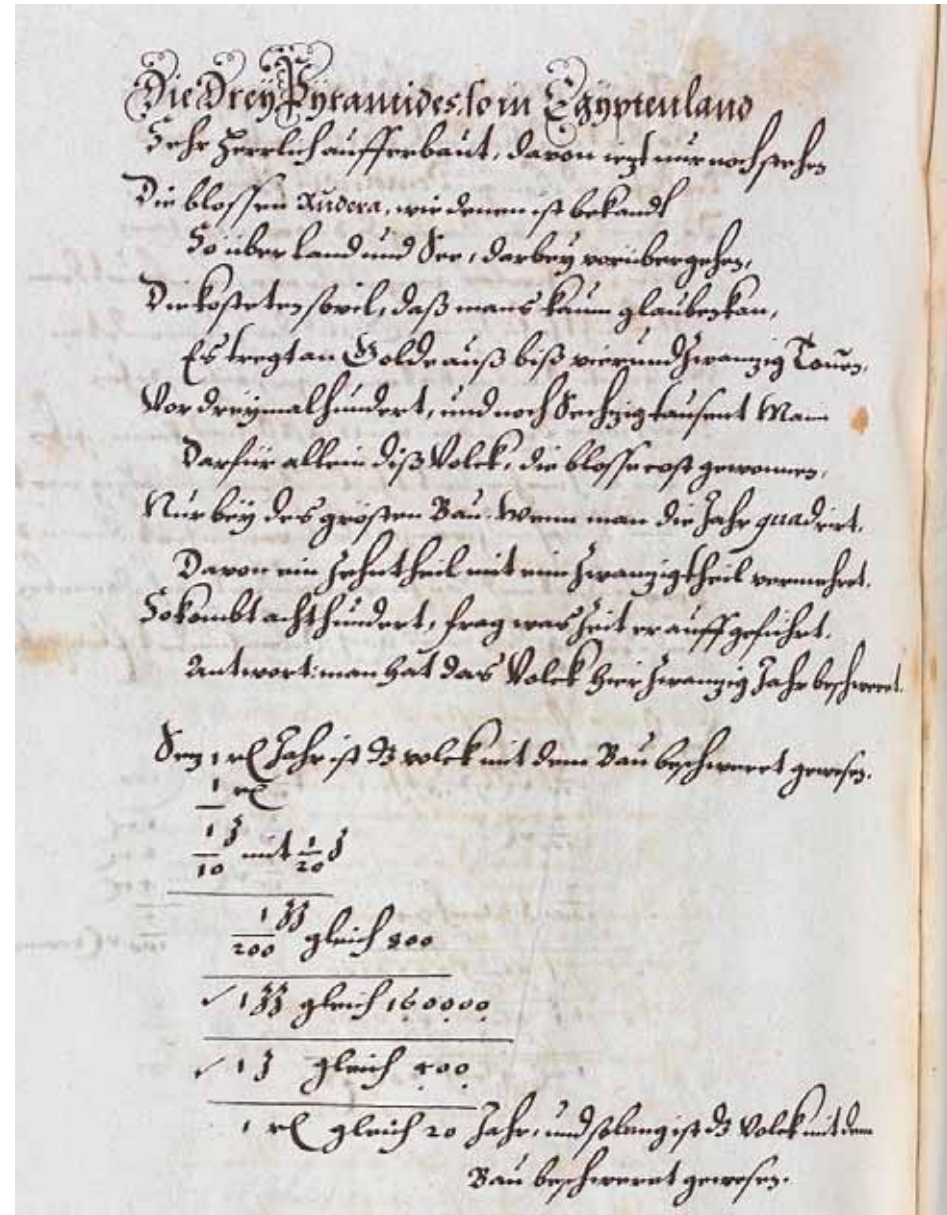 Die Drey Pyramides, so in Egyptenland
Sehr Herrlich aufferbaut, davon ietzt nur noch stehen
Die blossen Rudera, wie denen ist bekandt
So über Land und See, darbey vorübergehen,
Die kosteten sovil, daß mans kaum glauben kan,
Es tregt an Golde auß biß vier und zwanzig Tonen,
Vor dreymalhundert, und noch Sechzig tausent Mann
Darfür allein diß Volck, die blosse cost gewonnen,
Nur bey des grösten Bau. Wenn man die Jahr quadrirt.
Davon ein Zehntheil mit eim zwanzigtheil vermehret.
So kombt achthundert, frag was Zeit er auffgeführt.
Antwort: man hat das Volck hier zwanzig Jahr beschweret.
Sey 1 rl Jahr ist dz volck mit dem Bau beschweret gewesen.
1 rl
1/10 z mit 1/20 z
1/200 zz gleich 800
√ 1 zz gleich 160000
√ 1 z gleich 400
1 rl gleich 20 Jahr, und solang ist dz Volck mit dem
Bau beschweret gewesen.